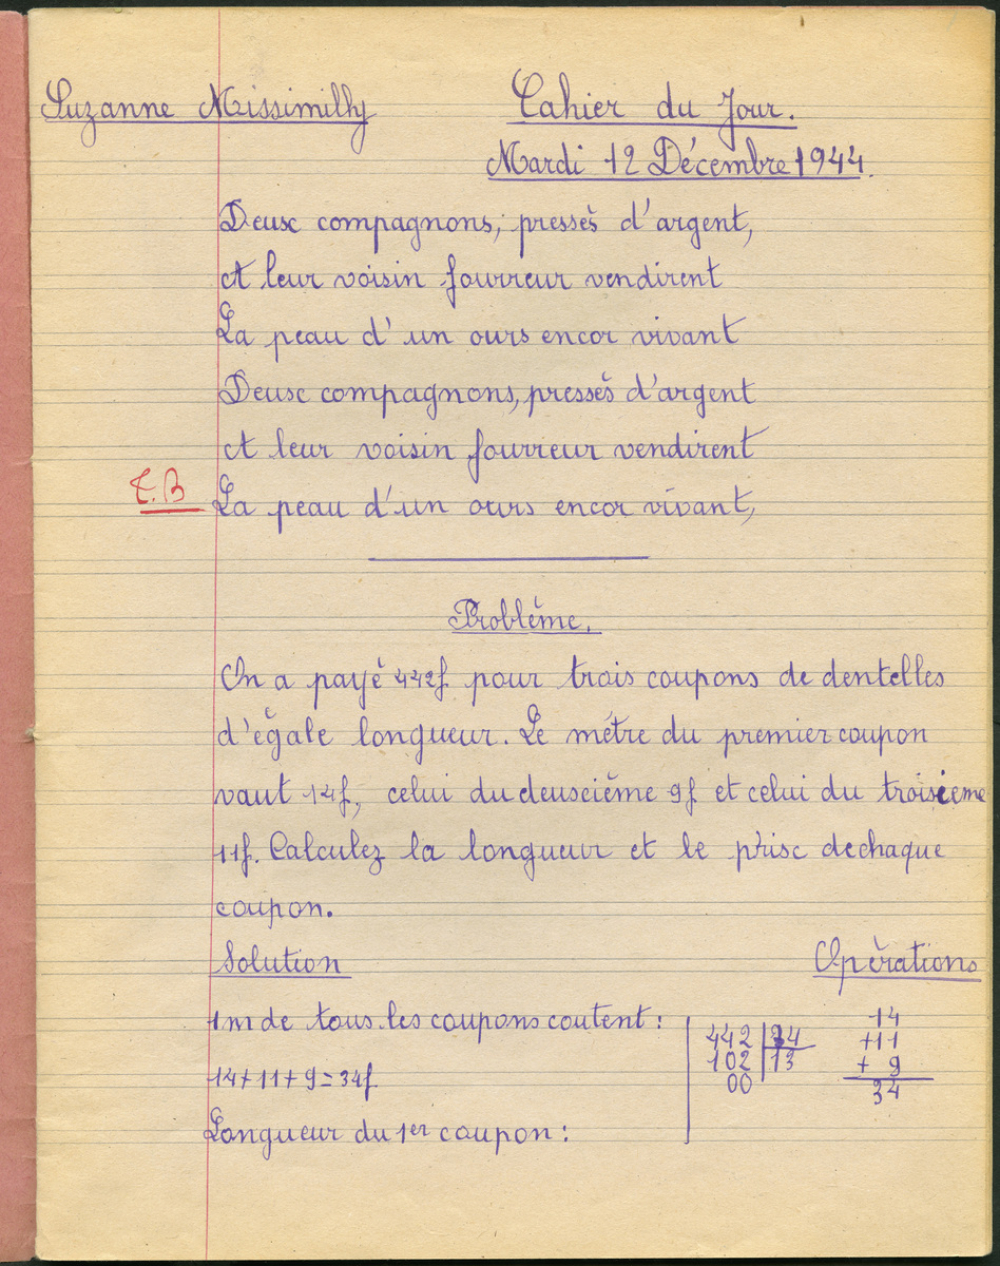 Suzanne Missimilly Cahier du Jour.
Mardi 12 Décembre 1944.
Deux compagnons, pressés d'argent,
A leur voisin fourreur vendirent
La peau d'un ours encor vivant
Deux compagnons, pressés d'argent
A leur voisin fourreur vendirent
T.B La peau d'un ours encor vivant,
Problème.
On a payé 442f. pour trois coupons de dentelles
d'égale longueur. Le métre du premier coupon
vaut 14f, celui du deuxième 9f et celui du troisieme
11f. Calculez la longueur et le prix de chaque
coupon.
Solution Opérations
1m de tous les coupons coutent :
14+11+9=34f.
Longueur du 1er coupon :
442 34
102 13
00
14
+11
+ 9
34